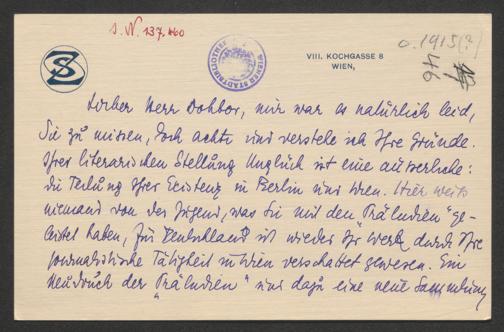 I. N. 137.160
o. 1915 (?)
46
SZ
WIENER STADTBIBLIOTHEK
VIII. KOCHGASSE 8
WIEN,
Lieber Herr Doktor, mir war es natürlich leid,
Sie zu missen, doch achte und verstehe ich Ihre Gründe.
Ihrer literarischen Stellung Unglück ist eine äusserliche:
die Teilung Ihrer Existenz in Berlin und Wien. Hier weiss
niemand von der Jugend, was Sie mit den "Präludien" ge-
leistet haben, für Deutschland ist wieder Ihr Werk durch Ihre
journalistische Tätigkeit in Wien verschattet gewesen. Ein
Neudruck der "Präludien" und dazu eine neue Sammlung